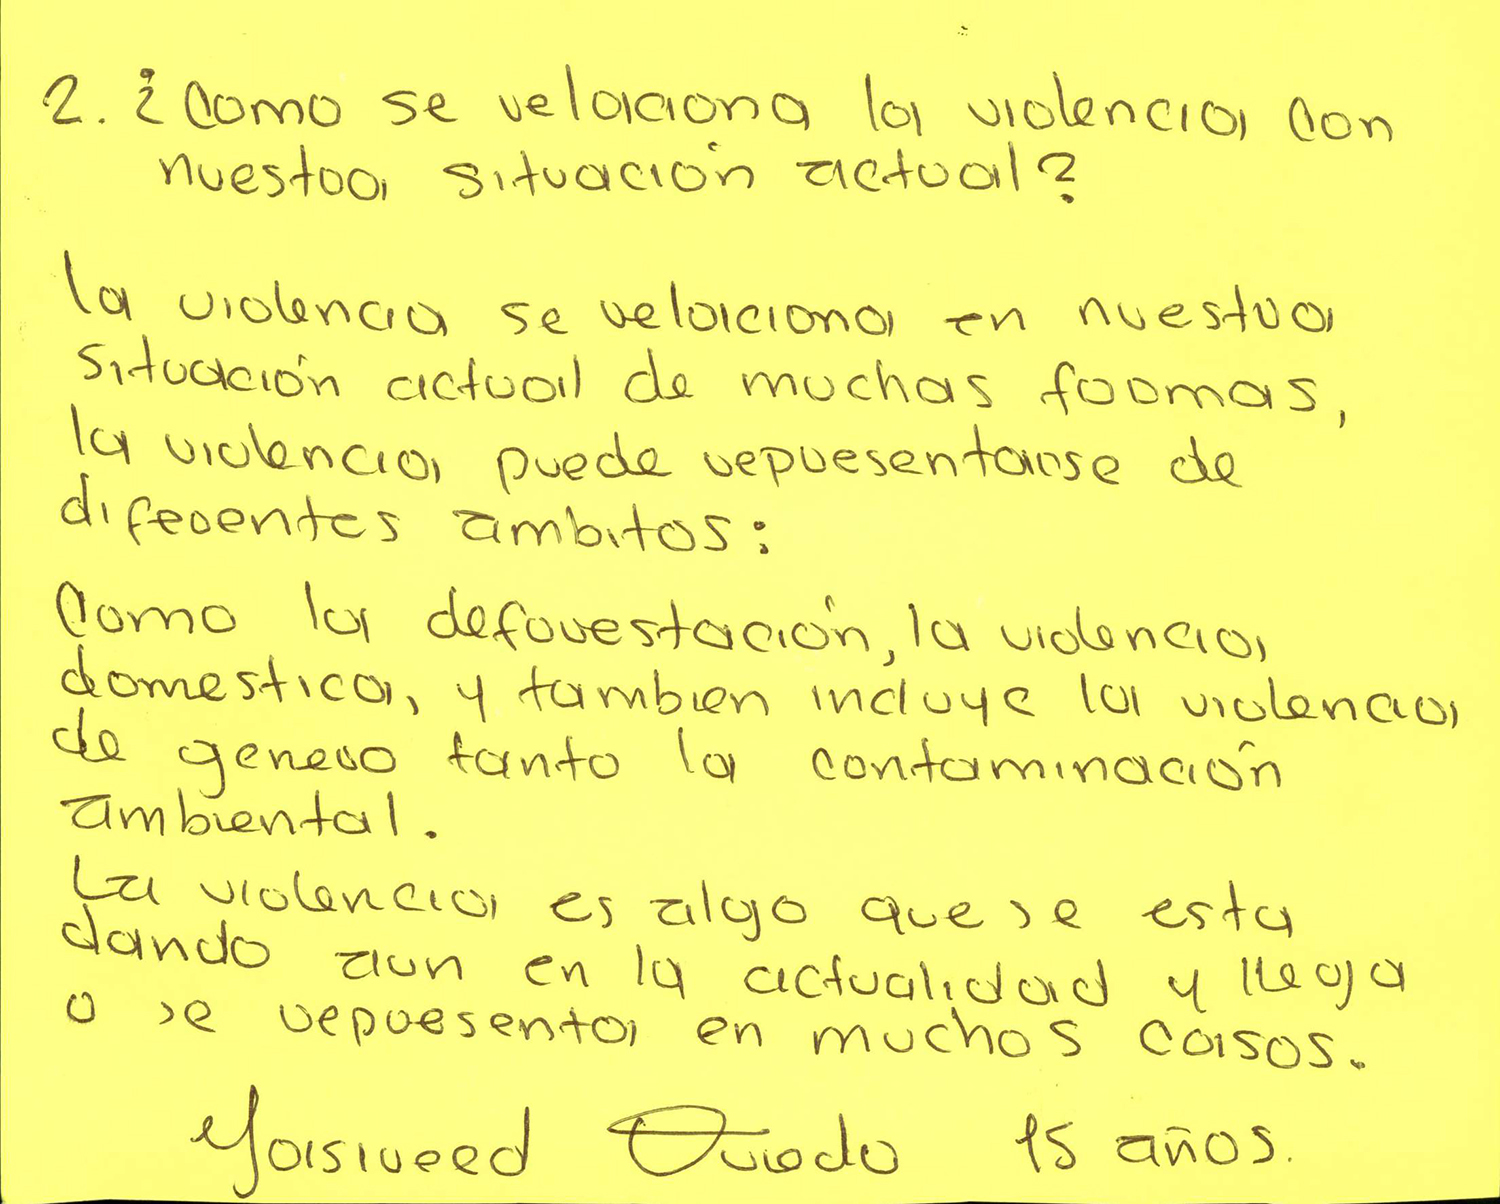 2. ¿Como se relaciona la violencia con
nuestra situación actual?
la violencia se relaciona en nuestra
situación actual de muchas formas,
la violencia puede representarse de
diferentes ambitos:
Como la deforestación, la violencia
domestica, y tambien incluye la violencia
de genero tanto la contaminación
ambiental.
La violencia es algo que se esta
dando aun en la actualidad y llega
o se representa en muchos casos.
Oviedo 15 años.